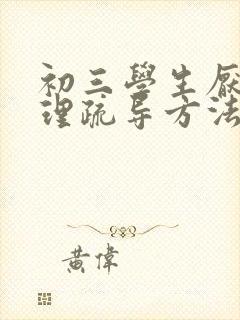 初三學生厭
理疏导方法
黄偉